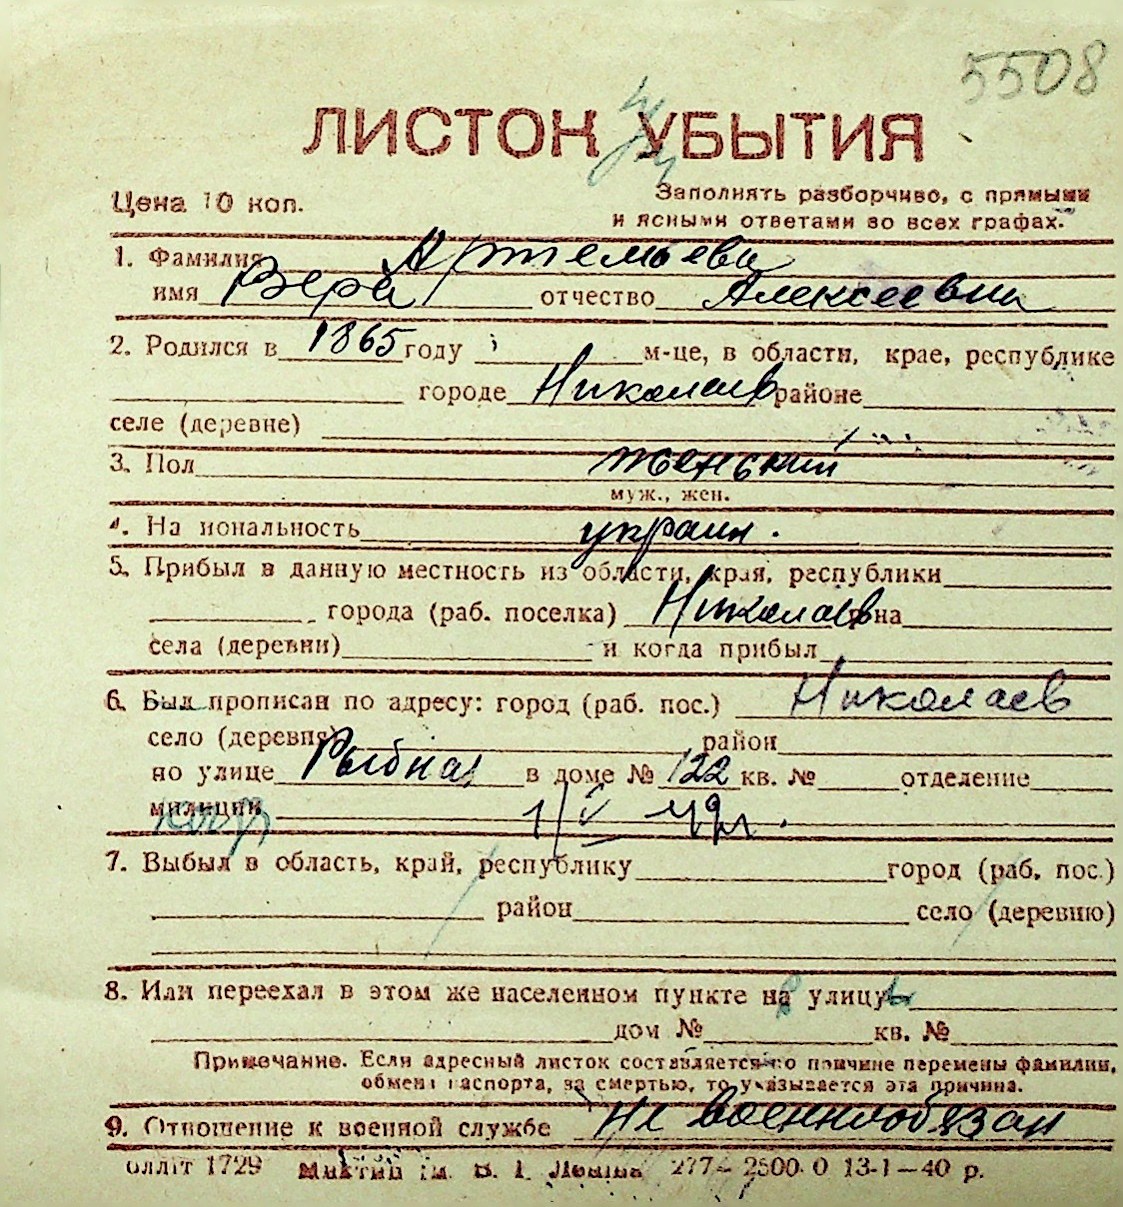 5508
ЛИСТОК УБЫТИЯ
Цена 10 коп.
Заполнять разборчиво, с прямыми
и ясными ответами во всех графах.
1. Фамилия Артемьева
имя Вера отчество Алексеевна
2. Родился в 1865 году м-це, в области, крае, республике
городе Николаев районе
селе (деревне)
3. Пол женский
муж., жен.
4. На иональность украин.
5. Прибыл в данную местность из области, края, республики
города (раб. поселка) Николаев р-на
села (деревни) и когда прибыл
6. Был прописан по адресу: город (раб. пос.) Николаев
село (деревня) район
по улице Рыбная в доме № 122 кв. № отделение
милиции 1/V 49г.
7. Выбыл в область, край, республику город (раб. пос.)
район село (деревню)
8. Или переехал в этом же населенном пункте на улицу
дом № кв. №
Примечание. Если адресный листок составляется по причине перемены фамилии,
обмена паспорта, за смертью, то указывается эта причина.
9. Отношение к военной службе не военнообязан
1729 ім. В. І. Леніна 277— 2500.0 13-1—40 р.